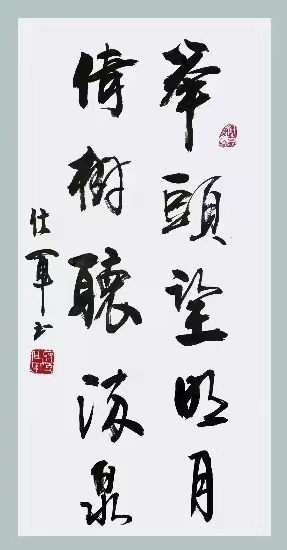 舉頭望明月
倚樹聽流泉
仕軍书